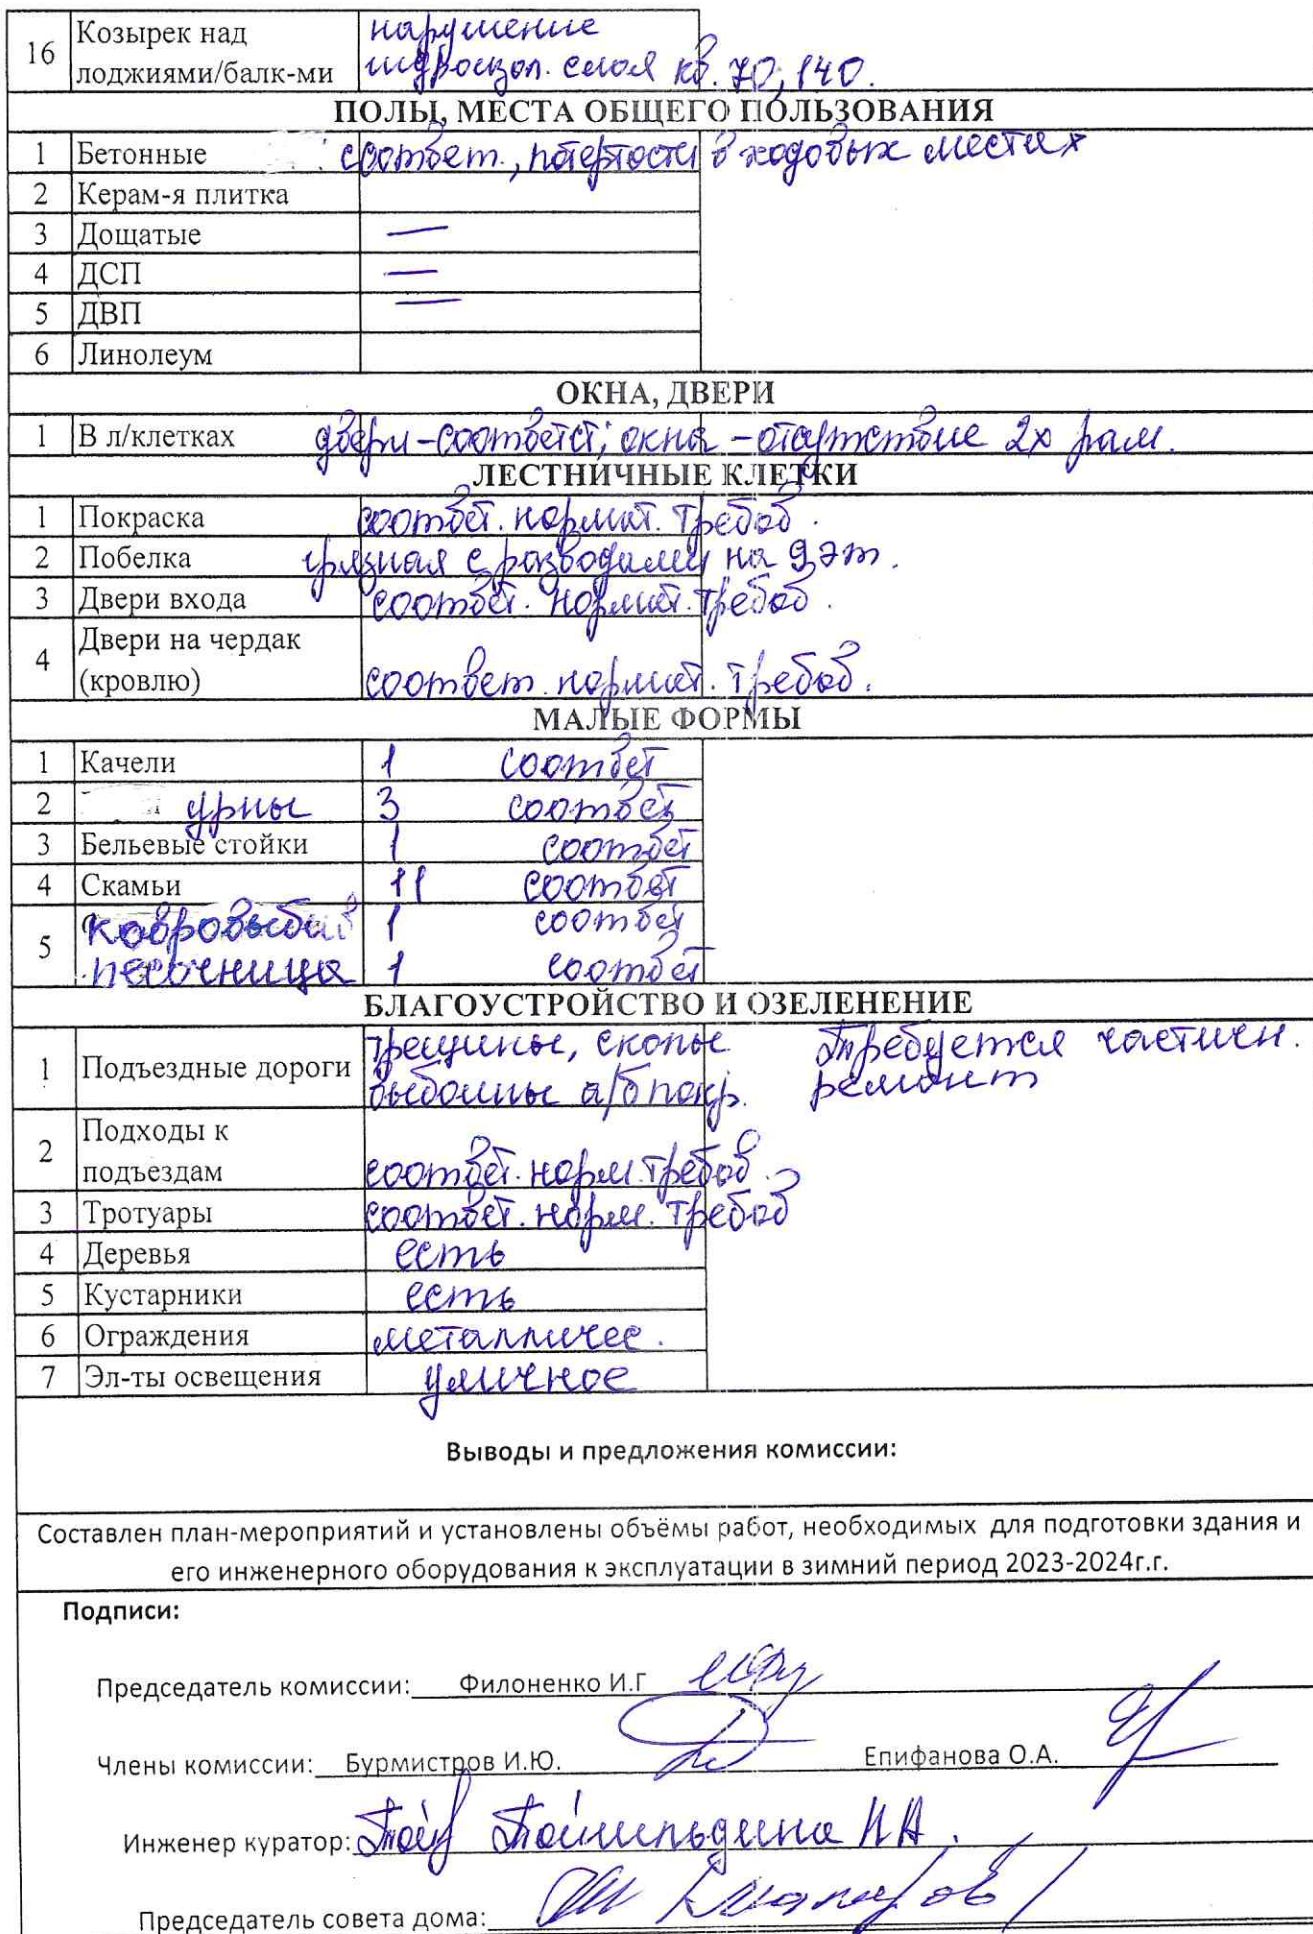 16 Козырек над лоджиями/балк-ми нарушение гидроизол. слоя кв. 70, 140.
ПОЛЫ, МЕСТА ОБЩЕГО ПОЛЬЗОВАНИЯ
1 Бетонные соответ., потертости в ходовых местах
2 Керам-я плитка
3 Дощатые —
4 ДСП —
5 ДВП —
6 Линолеум
ОКНА, ДВЕРИ
1 В л/клетках двери-соответст; окна - отсутствие 2х рам.
ЛЕСТНИЧНЫЕ КЛЕТКИ
1 Покраска соответ. нормат. требов.
2 Побелка грязная с разводами на 9 эт.
3 Двери входа соответ. нормат. требов.
4 Двери на чердак (кровлю) соответ. нормат. требов.
МАЛЫЕ ФОРМЫ
1 Качели 1 соответ
2 урны 3 соответ
3 Бельевые стойки 1 соответ
4 Скамьи 11 соответ
5 ковровыбив 1 соответ
песочница 1 соответ
БЛАГОУСТРОЙСТВО И ОЗЕЛЕНЕНИЕ
1 Подъездные дороги трещины, сколы Требуется частичн.
выбоины а/б покр. ремонт
2 Подходы к подъездам соответ. норм. требов.
3 Тротуары соответ. норм. требов
4 Деревья есть
5 Кустарники есть
6 Ограждения металличес.
7 Эл-ты освещения уличное
Выводы и предложения комиссии:
Составлен план-мероприятий и установлены объёмы работ, необходимых для подготовки здания и
его инженерного оборудования к эксплуатации в зимний период 2023-2024г.г.
Подписи:
Председатель комиссии: Филоненко И.Г
Члены комиссии: Бурмистров И.Ю. Епифанова О.А.
Инженер куратор:
Председатель совета дома: